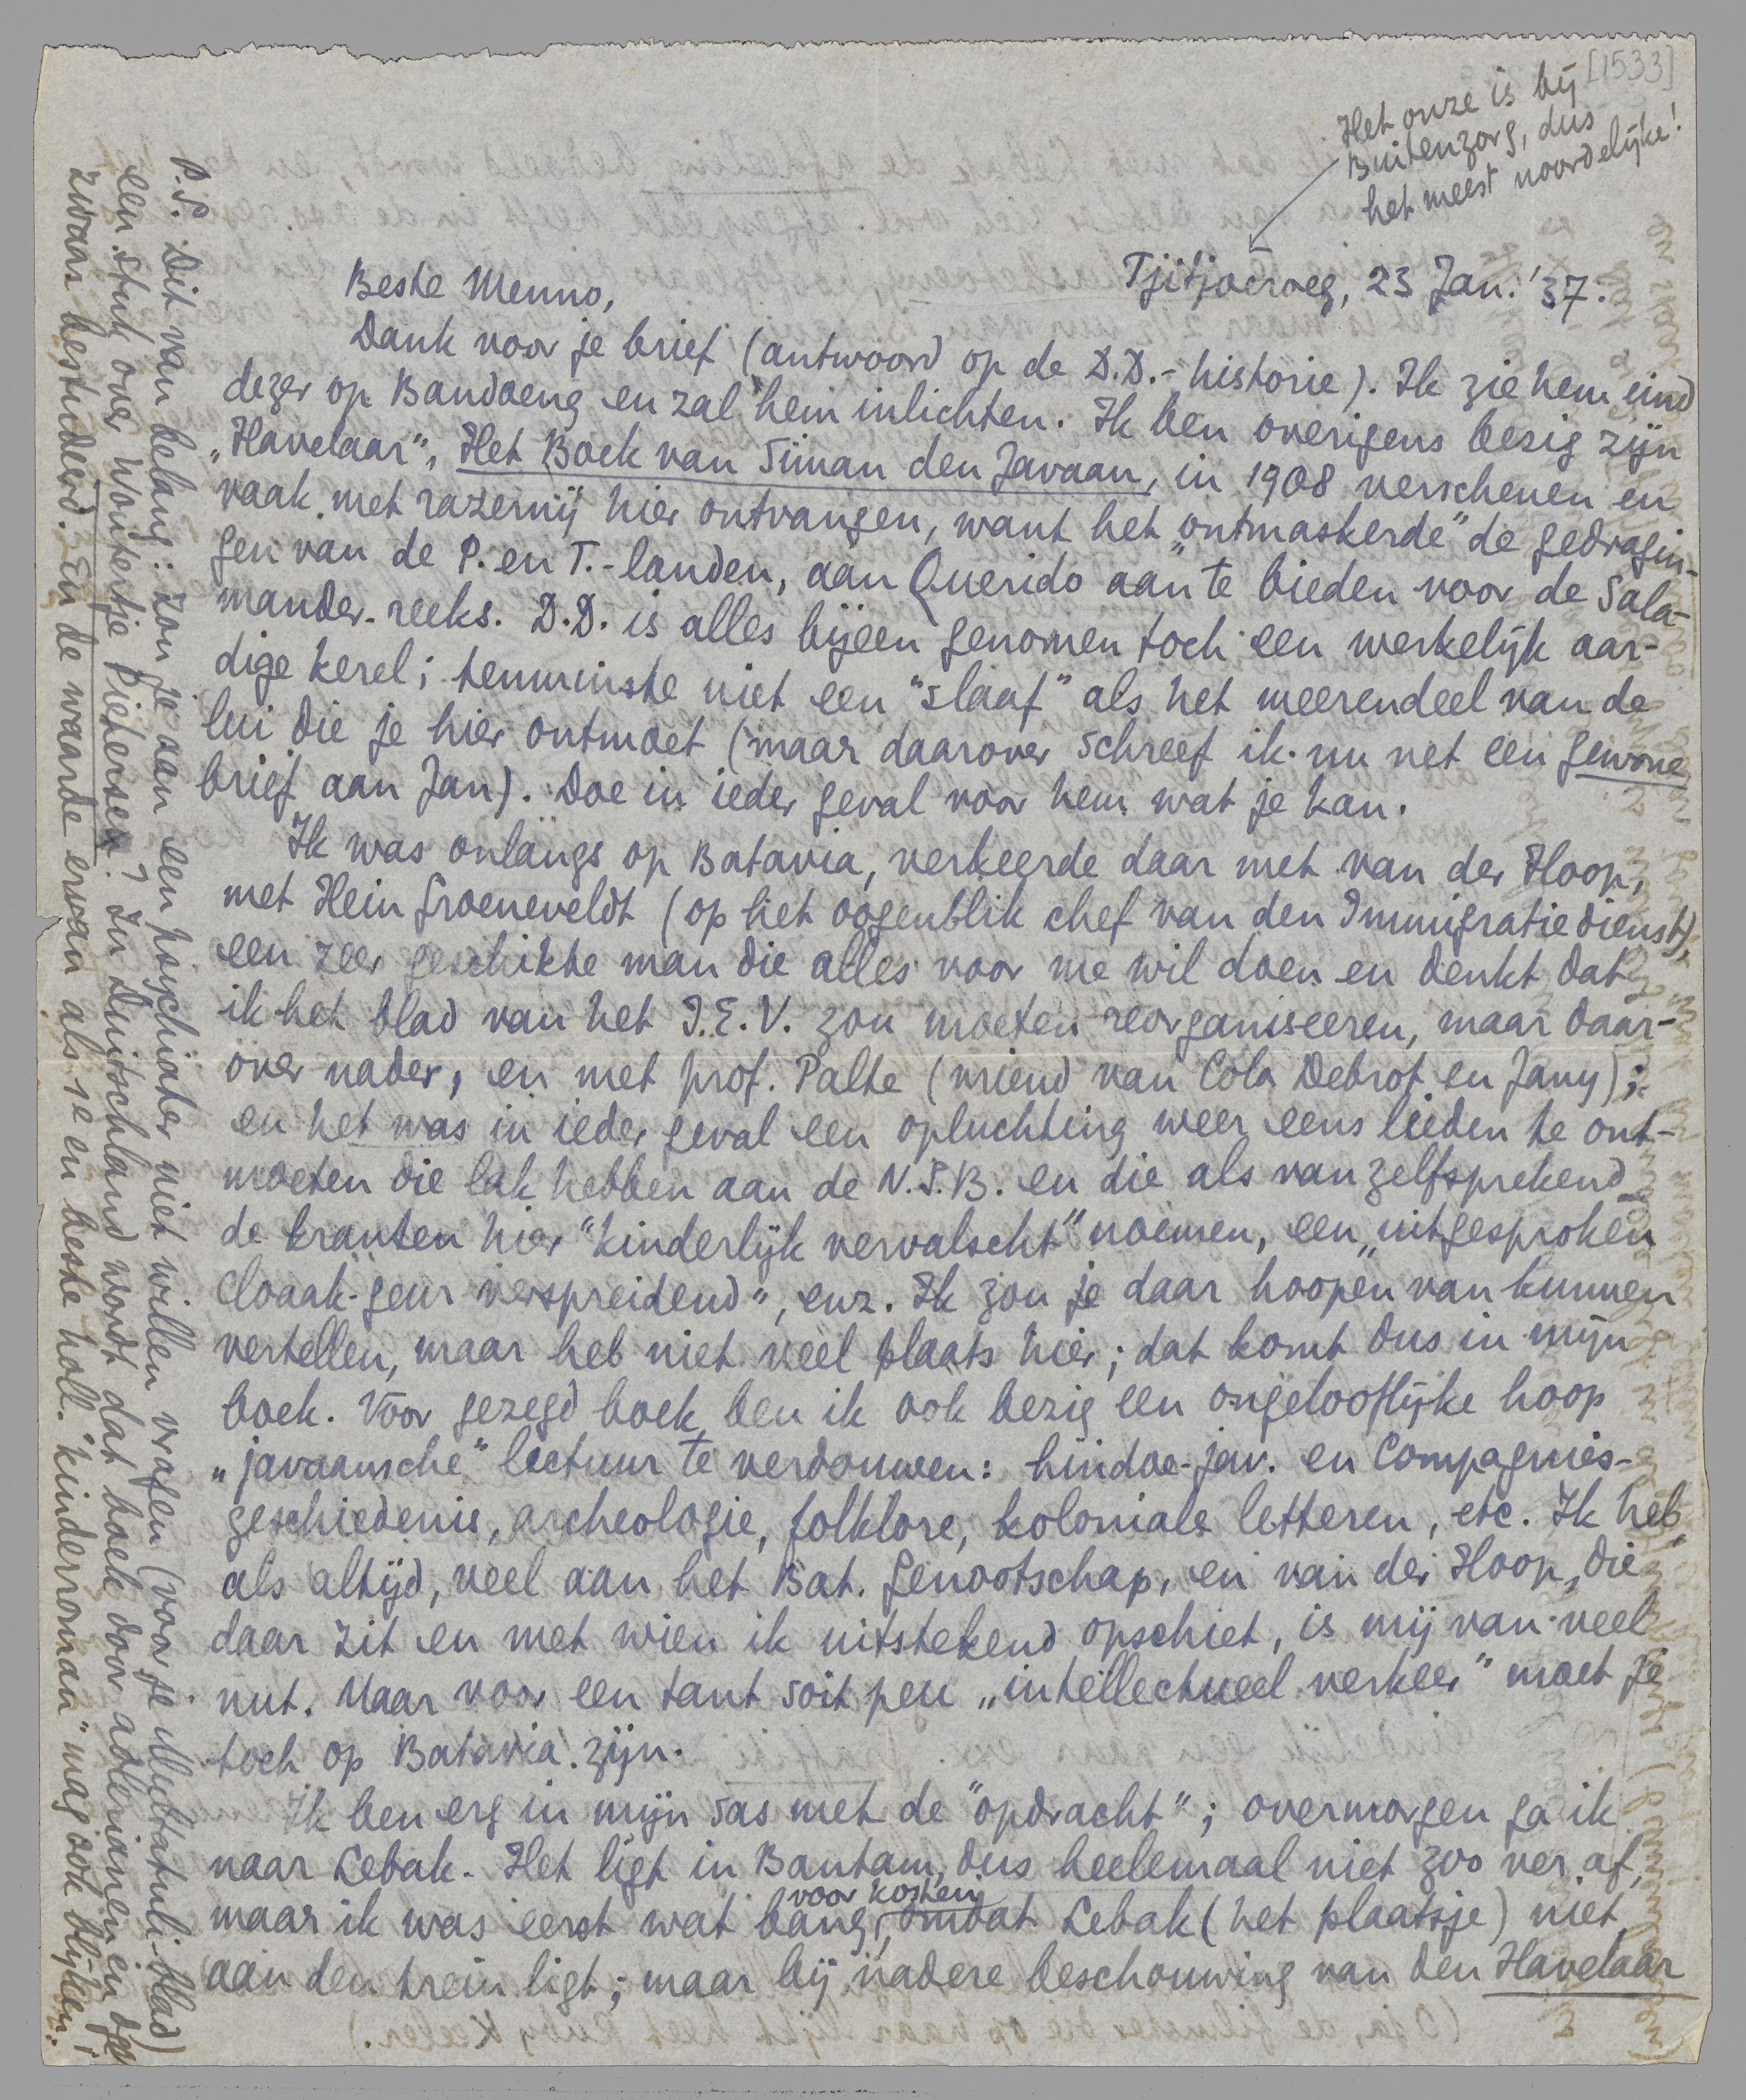 [1533]
Het onze is bij
Buitenzorg, dus
het meest noordelijke!
Tjitjoeroeg, 23 Jan. '37.
Beste Menno,
Dank voor je brief (antwoord op de D.D.-historie). Ik zie hem eind
dezer op Bandoeng en zal hem inlichten. Ik ben overigens bezig zijn
„Havelaar", Het Boek van Siman den Javaan, in 1908 verschenen en
vaak met razernij hier ontvangen, want het „ontmaskerde" de gedragin-
gen van de P. en T.-landen, aan Querido aan te bieden voor de Sala-
mander-reeks. D.D. is alles bijeen genomen toch een werkelijk aar-
dige kerel; tenminste niet een "slaaf" als het meerendeel van de
lui die je hier ontmoet (maar daarover schreef ik nu net een gewone
brief aan Jan). Doe in ieder geval voor hem wat je kan.
Ik was onlangs op Batavia, verkeerde daar met van der Hoop,
met Hein Groeneveldt (op het oogenblik chef van den Immigratiedienst),
een zeer geschikte man die alles voor me wil doen en denkt dat
ik het blad van het I.E.V. zou moeten reorganiseeren, maar daar-
over nader, en met prof. Palte (vriend van Cola Debrot en Jany);
en het was in ieder geval een opluchting weer eens lieden te ont-
moeten die lak hebben aan de N.S.B. en die als vanzelfsprekend
de kranten hier "kinderlijk vervalscht" noemen, een „uitgesproken
cloaak-geur verspreidend", enz. Ik zou je daar hoopen van kunnen
vertellen, maar heb niet veel plaats hier; dat komt dus in mijn
boek. Voor gezegd boek ben ik ook bezig een ongelooflijke hoop
„javaansche" lectuur te verdouwen: hindoe-jav. en Compagnies-
geschiedenis, archeologie, folklore, koloniale letteren, etc. Ik heb,
als altijd, veel aan het Bat. Genootschap, en van der Hoop, die
daar zit en met wien ik uitstekend opschiet, is mij van veel
nut. Maar voor een tant soit peu „intellectueel verkeer" moet je
toch op Batavia zijn.
Ik ben erg in mijn sas met de "opdracht"; overmorgen ga ik
naar Lebak. Het ligt in Bantam, dus heelemaal niet zoo ver af,
voor kosten
maar ik was eerst wat bang, omdat Lebak (het plaatsje) niet
aan den trein ligt; maar bij nadere beschouwing van den Havelaar
P.S. Dit van belang: zou je aan een psychiater niet willen vragen (voor je Multatuli-blad)
een stuk over Woutertje Pieterse? In Duitschland wordt dat boek door adlerianen en
zwaar bestudeerd. En de waarde ervan als 1e en beste holl. "kinderroman" mag ook blijken.